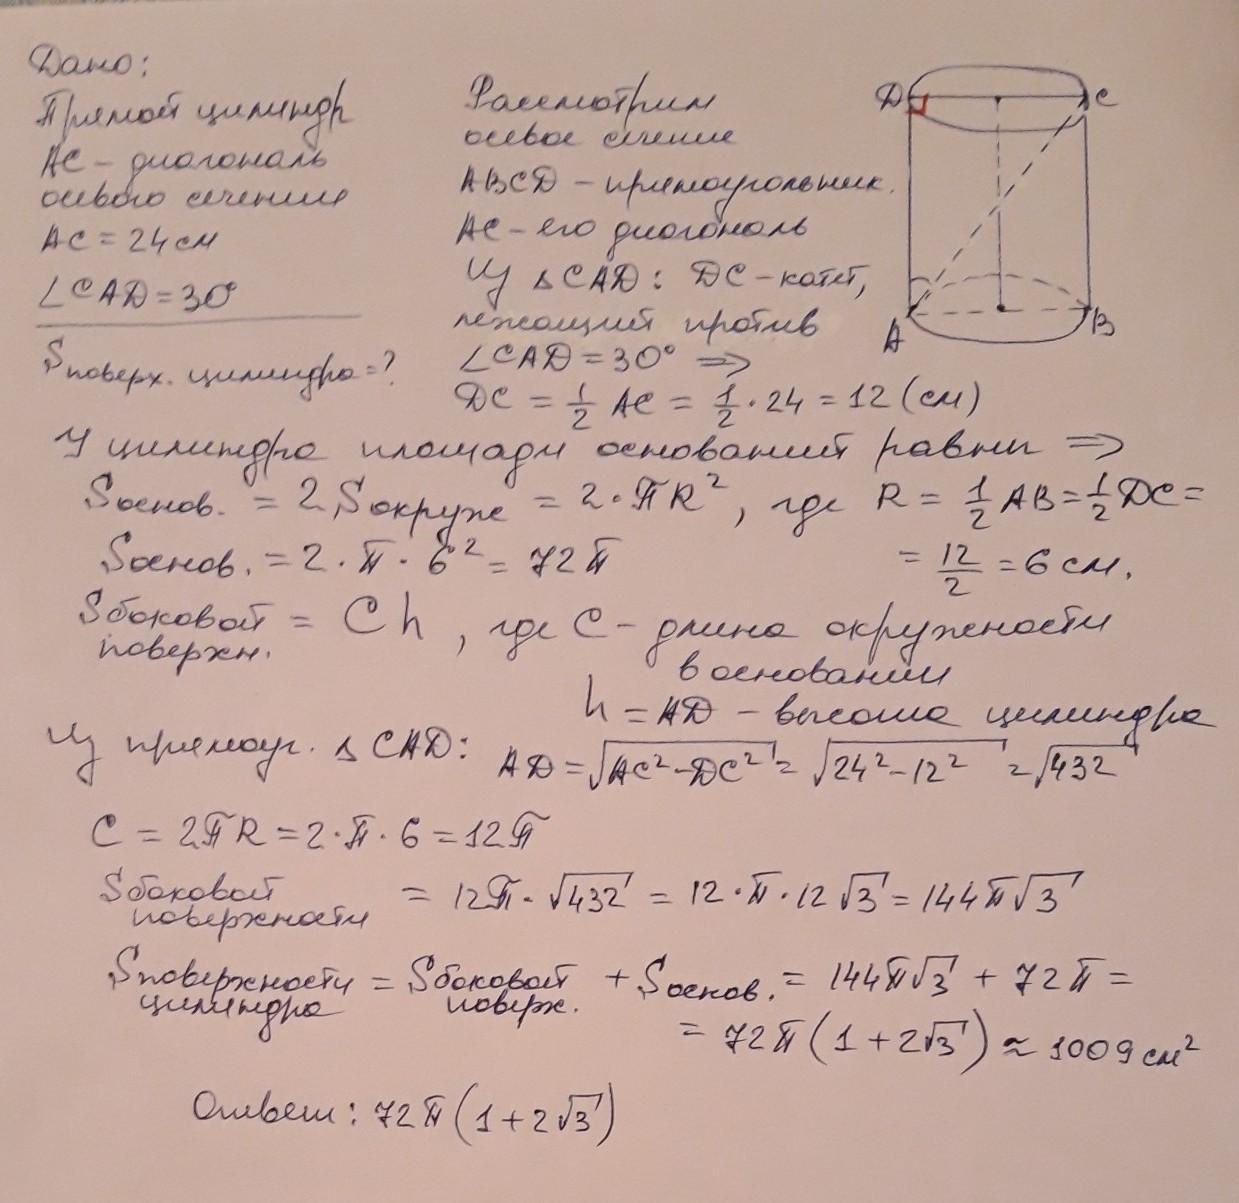 Дано:
Прямой цилиндр
AC - диагональ
осевого сечения
AC = 24 см
∠CAD = 30°
Sповерх. цилиндра = ?
Рассмотрим
осевое сечение
ABCD - прямоугольник.
AC - его диагональ
Из △CAD: DC - катет,
лежащий против
∠CAD = 30° ⇒
DC = 1/2 AC = 1/2 · 24 = 12 (см)
D C
A B
У цилиндра площади оснований равны ⇒
Sоснов. = 2Sокруж = 2·πR², где R = 1/2 AB = 1/2 DC =
Sоснов. = 2·π·6² = 72π = 12/2 = 6 см.
Sбоковой поверхн. = Ch, где C - длина окружности
в основании
h = AD - высота цилиндра
Из прямоуг. △CAD: AD = √(AC²-DC²) = √(24²-12²) = √432
C = 2πR = 2·π·6 = 12π
Sбоковой поверхности = 12π·√432 = 12·π·12√3 = 144π√3
Sповерхности цилиндра = Sбоковой поверх. + Sоснов. = 144π√3 + 72π =
= 72π(1+2√3) ≈ 1009 см²
Ответ: 72π(1+2√3)